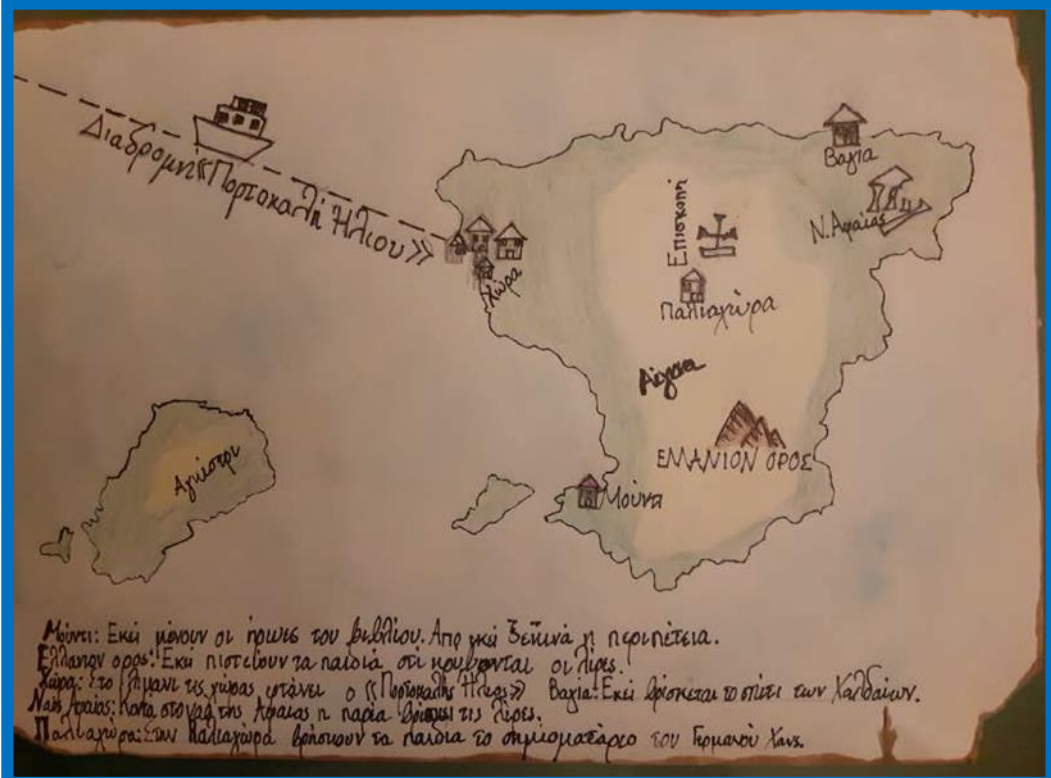 Διαδρομή «Πορτοκαλή Ήλιου»
Βαγία
Ν. Αφαίας
Επισκοπή
Χώρα
Παλιαχώρα
Αίγινα
ΕΛΛΑΝΙΟΝ ΟΡΟΣ
Αγκίστρι
Μούντι
Μούντι: Εκεί μένουν οι ήρωες του βιβλίου. Απο εκεί ξεκινά η περιπέτεια.
Ελλανιον ορος: Εκει πιστεύουν τα παιδιά οτι κρυβονται οι λίρες.
Χώρα: Στο λημανι τις χώρας φτάνει ο «Πορτοκαλής Ήλιος» Βαγία: Εκεί βρίσκεται το σπίτι των Χαλδαίων.
Ναός Αφαίας: Κατα στο ναο της Αφαιας η παρέα βρισκει τις λίρες.
Παλιαχώρα: Στην Παλιαχώρα βρησκουν τα παιδια το σημιοματάριο του Γερμανού Χανς.